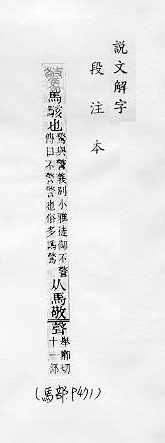 說文解字
段注本
驚 馬駭也 驚與警義別小雅徒御不警
傳曰不警警也俗多譌驚 从馬敬聲 舉卿切
十一部
(馬部P471)